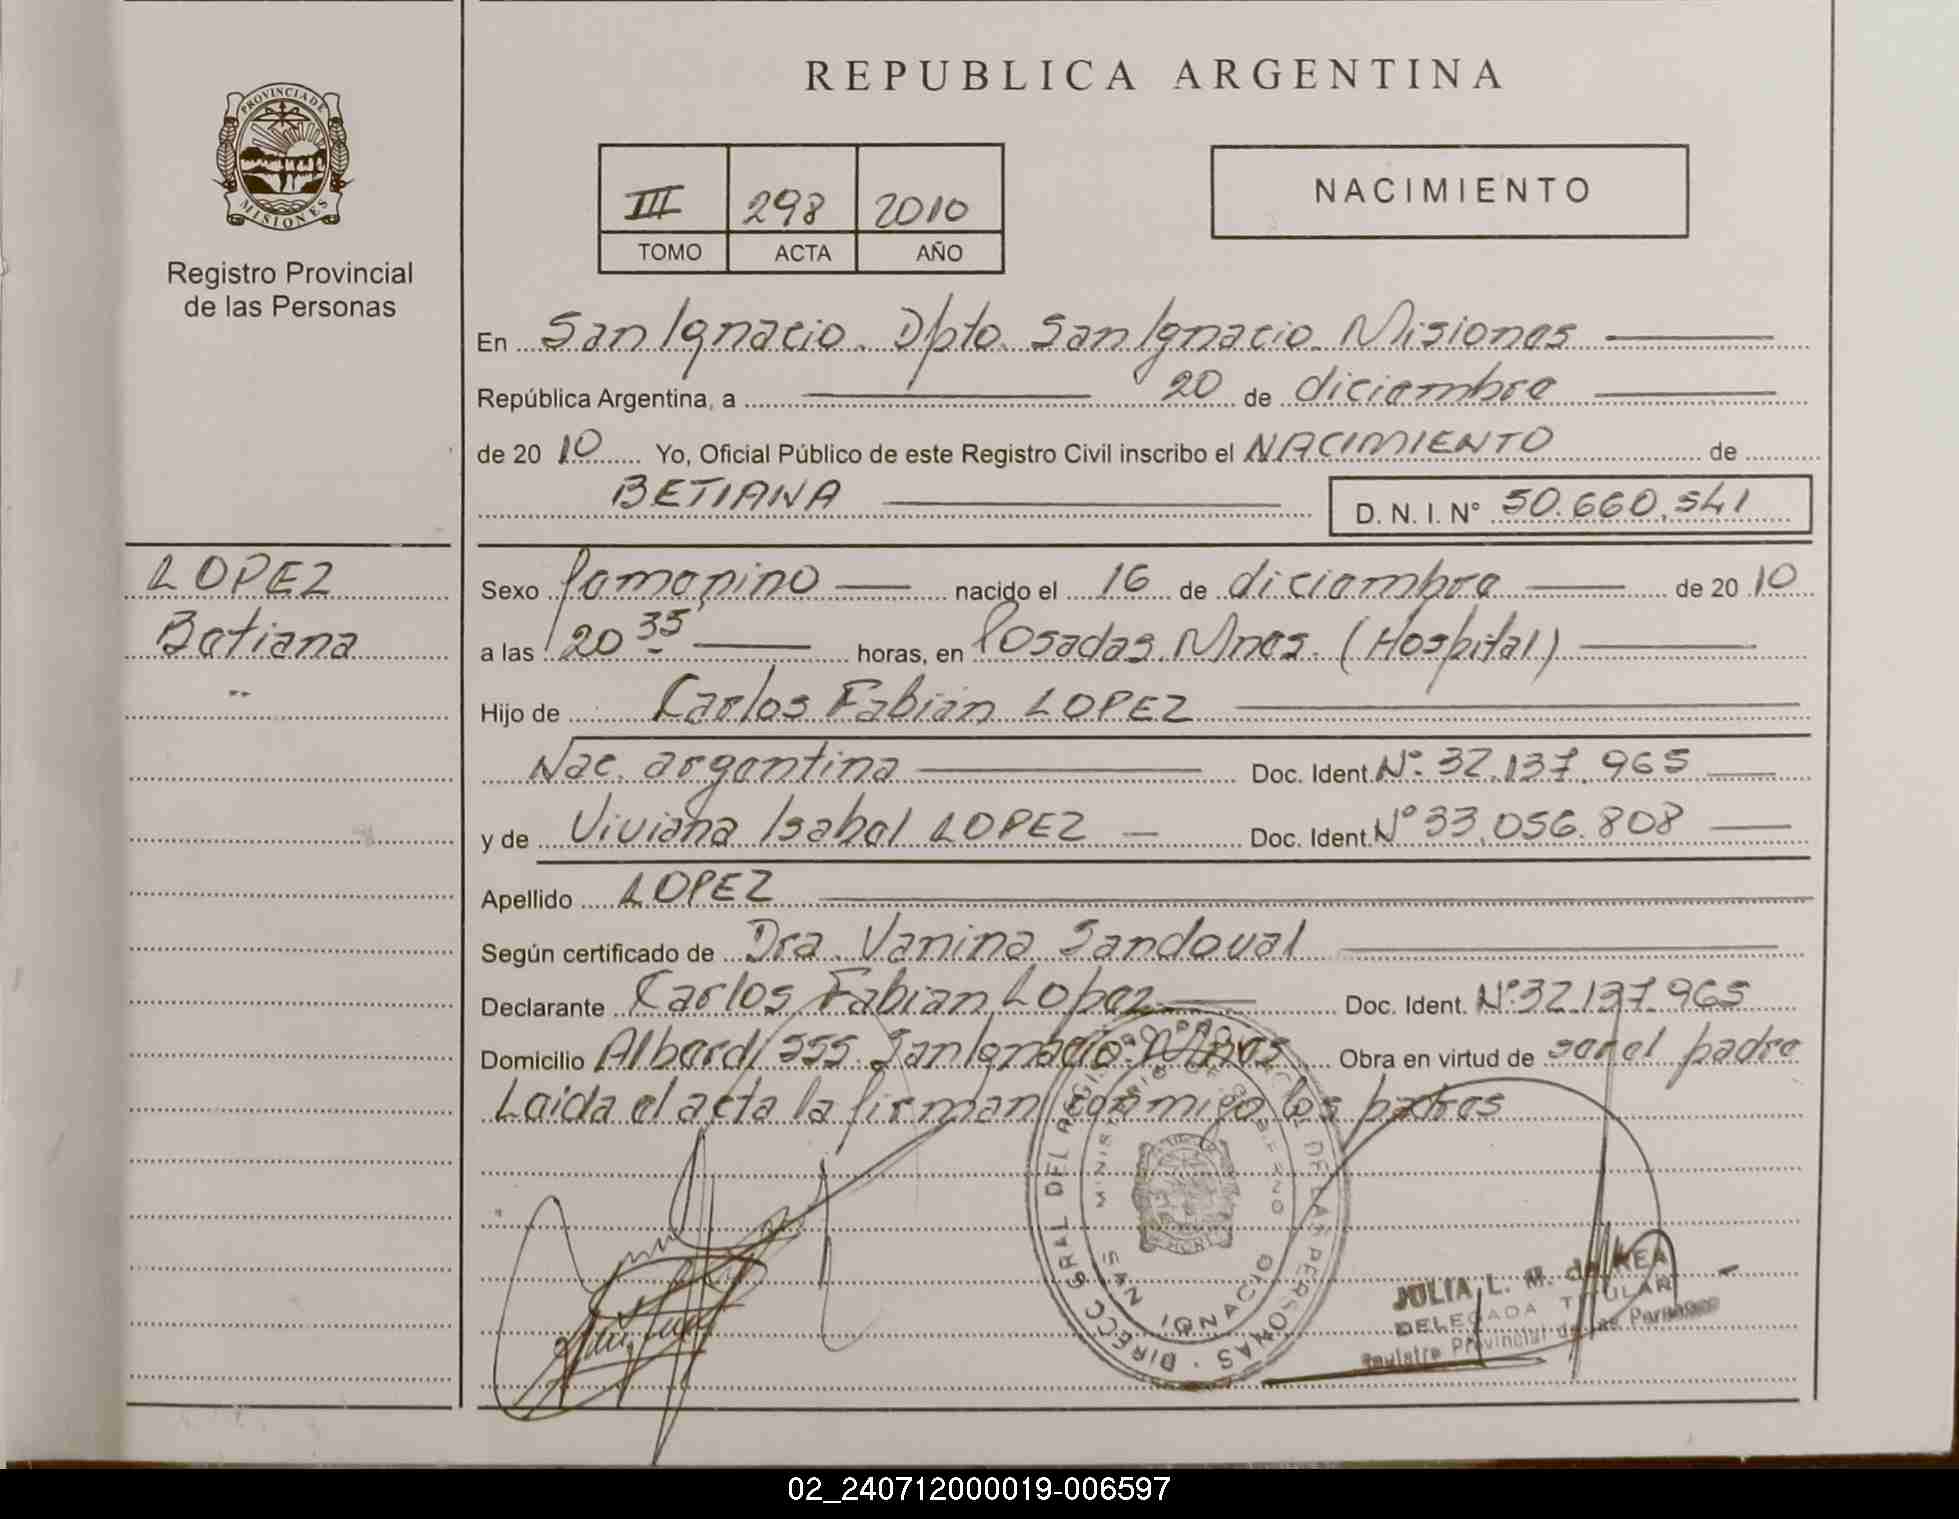 REPUBLICA ARGENTINA
PROVINCIA DE
MISIONES
Registro Provincial
de las Personas
III 298 2010
TOMO ACTA AÑO
NACIMIENTO
En San Ignacio. Dpto. San Ignacio. Misiones
República Argentina, a 20 de diciembre
de 20 10 Yo, Oficial Público de este Registro Civil inscribo el NACIMIENTO de
BETIANA D. N. I. N° 50.660.541
LOPEZ
Betiana
Sexo femenino nacido el 16 de diciembre de 20 10
a las 20 35 horas, en Posadas. Mnes. (Hospital)
Hijo de Carlos Fabián LOPEZ
Nac. argentina Doc. Ident. N°. 32.137.965
y de Viviana Isabel LOPEZ Doc. Ident. N° 33.056.808
Apellido LOPEZ
Según certificado de Dra. Vanina Sandoval
Declarante Carlos Fabian Lopez Doc. Ident. N°. 32.137.965
Domicilio Alberdi 555. San Ignacio. Mnes Obra en virtud de ser el padre
Leida el acta la firman conmigo los padres
DIRECC GRAL DEL REGISTRO PROVINCIAL DE LAS PERSONAS
MINISTERIO DE GOBIERNO
SAN IGNACIO
JULIA L. M. de REA
DELEGADA TITULAR
Registro Provincial de las Personas
02_240712000019-006597